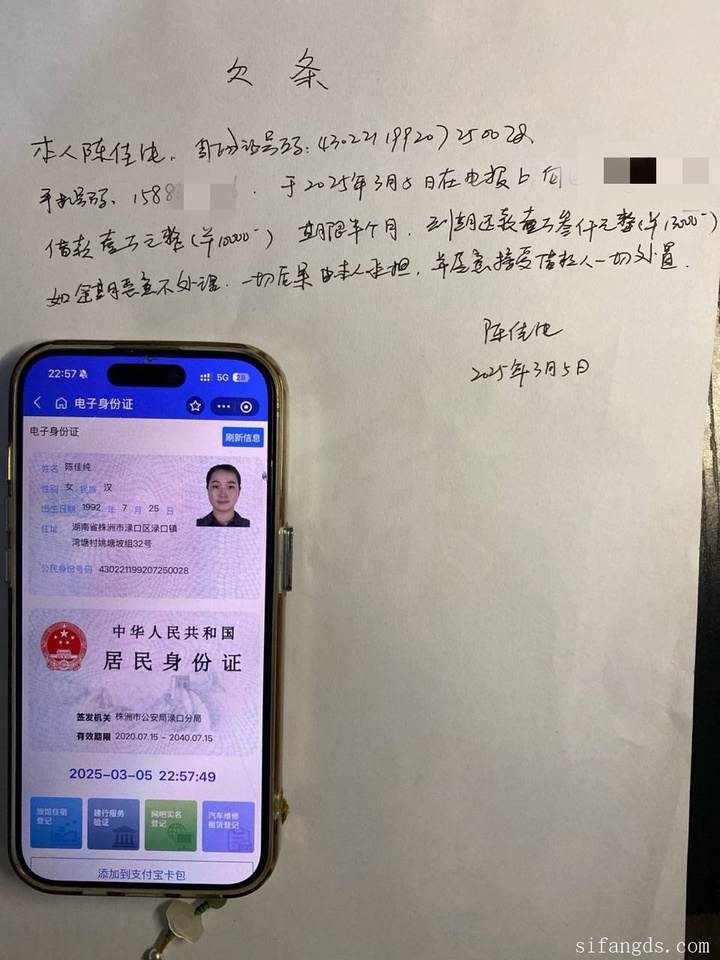 欠条
本人陈佳纯，身份证号码：430221199207250028，
手机号码：1588 ，于2025年3月5日在电报上向
借款壹万元整（￥10000-）期限半个月，到期还款壹万叁仟元整（￥13000-）
如全期恶意不处理，一切后果由本人承担，并愿意接受借款人一切处置．
陈佳纯
2025年3月5日
22:57 5G 28
电子身份证
电子身份证 刷新信息
姓名 陈佳纯
性别 女 民族 汉
出生日期 1992 年 7 月 25 日
住址 湖南省株洲市渌口区渌口镇
湾塘村姚塘坡组32号
公民身份号码 430221199207250028
中华人民共和国
居民身份证
签发机关 株洲市公安局渌口分局
有效期限 2020.07.15 - 2040.07.15
2025-03-05 22:57:49
旅馆住宿登记 建行服务验证 网吧实名登记 汽车维修租赁登记
添加到支付宝卡包
sifangds.com